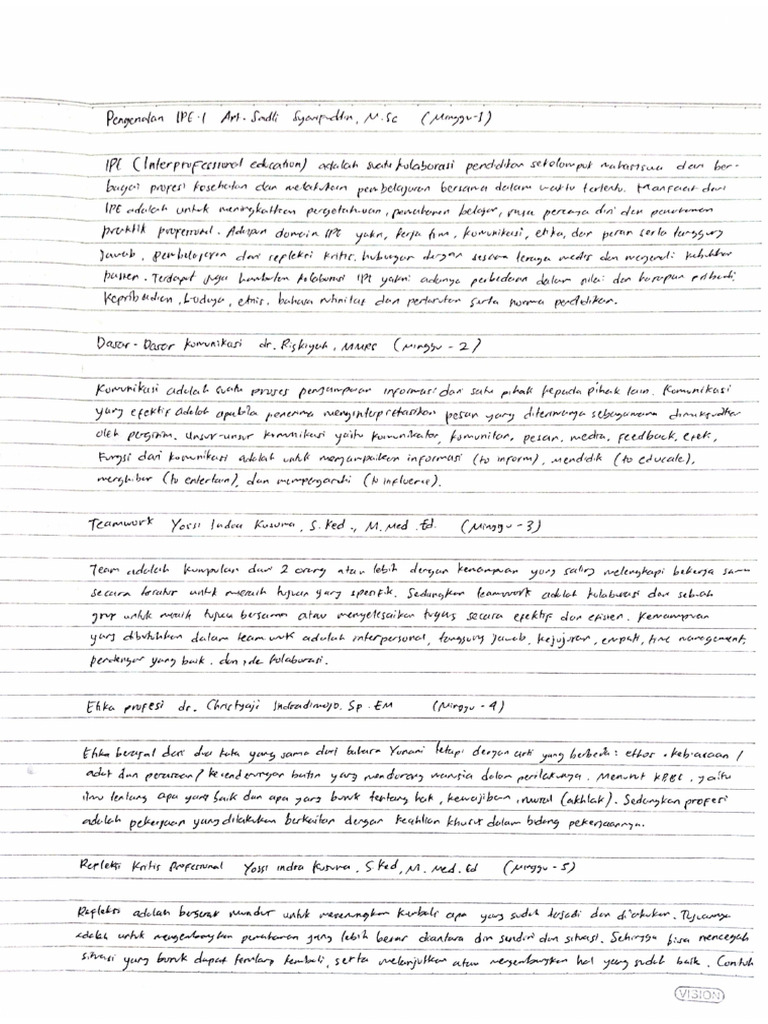 Pengenalan IPE-1 Apt. Sadli Syarifuddin, M.Sc (Minggu-1)
IPE (Interprofessional education) adalah suatu kolaborasi pendidikan sekelompok mahasiswa dari ber-
bagai profesi kesehatan dan melakukan pembelajaran bersama dalam waktu tertentu. Manfaat dari
IPE adalah untuk meningkatkan pengetahuan, pemahaman belajar, rasa percaya diri dan pemahaman
praktik professional. Adapun domain IPE yakni, kerja tim, komunikasi, etika, dan peran serta tanggung
jawab, pembelajaran dari refleksi kritis, hubungan dengan sesama tenaga medis dan mengenali kebutuhan
pasien. Terdapat juga hambatan kolaborasi IPE yakni adanya perbedaan dalam nilai dan harapan pribadi,
kepribadian, budaya, etnis, bahasa rutinitas dan peraturan serta norma pendidikan.
Dasar-Dasar komunikasi dr. Rizkiyah, MMRS (Minggu-2)
Komunikasi adalah suatu proses penyampaian informasi dari satu pihak kepada pihak lain. Komunikasi
yang efektif adalah apabila penerima menginterpretasikan pesan yang diterimanya sebagaimana dimaksudkan
oleh pengirim. Unsur-unsur komunikasi yaitu komunikator, komunikan, pesan, media, feedback, efek.
Fungsi dari komunikasi adalah untuk menyampaikan informasi (to inform), mendidik (to educate),
menghibur (to entertain), dan mempengaruhi (to influence).
Teamwork Yossi Indra Kusuma, S.Ked., M.Med.Ed. (Minggu-3)
Team adalah kumpulan dari 2 orang atau lebih dengan kemampuan yang saling melengkapi bekerja sama
secara teratur untuk meraih tujuan yang spesifik. Sedangkan teamwork adalah kolaborasi dari sebuah
grup untuk meraih tujuan bersama atau menyelesaikan tugas secara efektif dan efisien. Kemampuan
yang dibutuhkan dalam teamwork adalah interpersonal, tanggung jawab, kejujuran, empati, time management,
pendengar yang baik, dan ide kolaborasi.
Etika profesi dr. Sp.EM (Minggu-4)
Etika berasal dari dua kata yang sama dari bahasa Yunani tetapi dengan arti yang berbeda: ethos kebiasaan/
adat dan perasaan/kecenderungan batin yang mendorong manusia dalam perilakunya. Menurut KBBI, yaitu
ilmu tentang apa yang baik dan apa yang buruk tentang hak, kewajiban, moral (akhlak). Sedangkan profesi
adalah pekerjaan yang dilakukan berkaitan dengan keahlian khusus dalam bidang pekerjaannya.
Refleksi Kritis Profesional Yossi Indra Kusuma, S.Ked, M.Med.Ed (Minggu-5)
Refleksi adalah bergerak mundur untuk merenungkan kembali apa yang sudah terjadi dan dilakukan. Tujuannya
adalah untuk mengembangkan pemahaman yang lebih besar diantara diri sendiri dan situasi. Sehingga bisa mencegah
situasi yang buruk dapat terulang kembali, serta melanjutkan atau mengembangkan hal yang sudah baik. Contoh
VISION